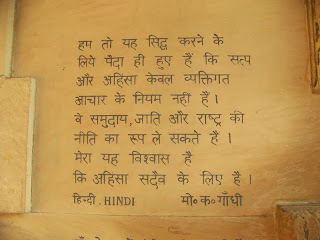 हम तो यह सिद्ध करने के
लिये पैदा ही हुए हैं कि सत्य
और अहिंसा केवल व्यक्तिगत
आचार के नियम नहीं हैं।
वे समुदाय, जाति और राष्ट्र की
नीति का रूप ले सकते हैं।
मेरा यह विश्वास है
कि अहिंसा सदैव के लिए है।
हिन्दी. HINDI मो॰क॰गाँधी